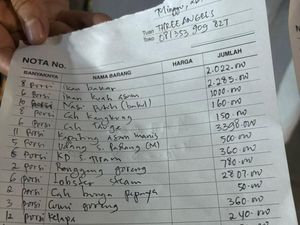 Minggu, 26
Tuan THREE ANGELS
Toko 081353 909 827
NOTA No.
BANYAKNYA NAMA BARANG HARGA JUMLAH
8 porsi Ikan bakar 2.022.000
6 porsi Ikan kuah asam 2.283.000
10 porsi Nasi putih (bakul) 1000.000
8 porsi Cah kangkung 160.000
6 porsi Cah toge 150.000
11 porsi Kepiting asam manis 3398.000
5 porsi Udang S. Padang (M) 500.000
6 porsi KD S. Tiram 360.000
2 porsi goreng 780.000
6 porsi Lobster steam 2807.000
2 porsi Cah bunga pepaya 50.000
3 porsi Cumi goreng 360.000
12 porsi Kelapa 240.000